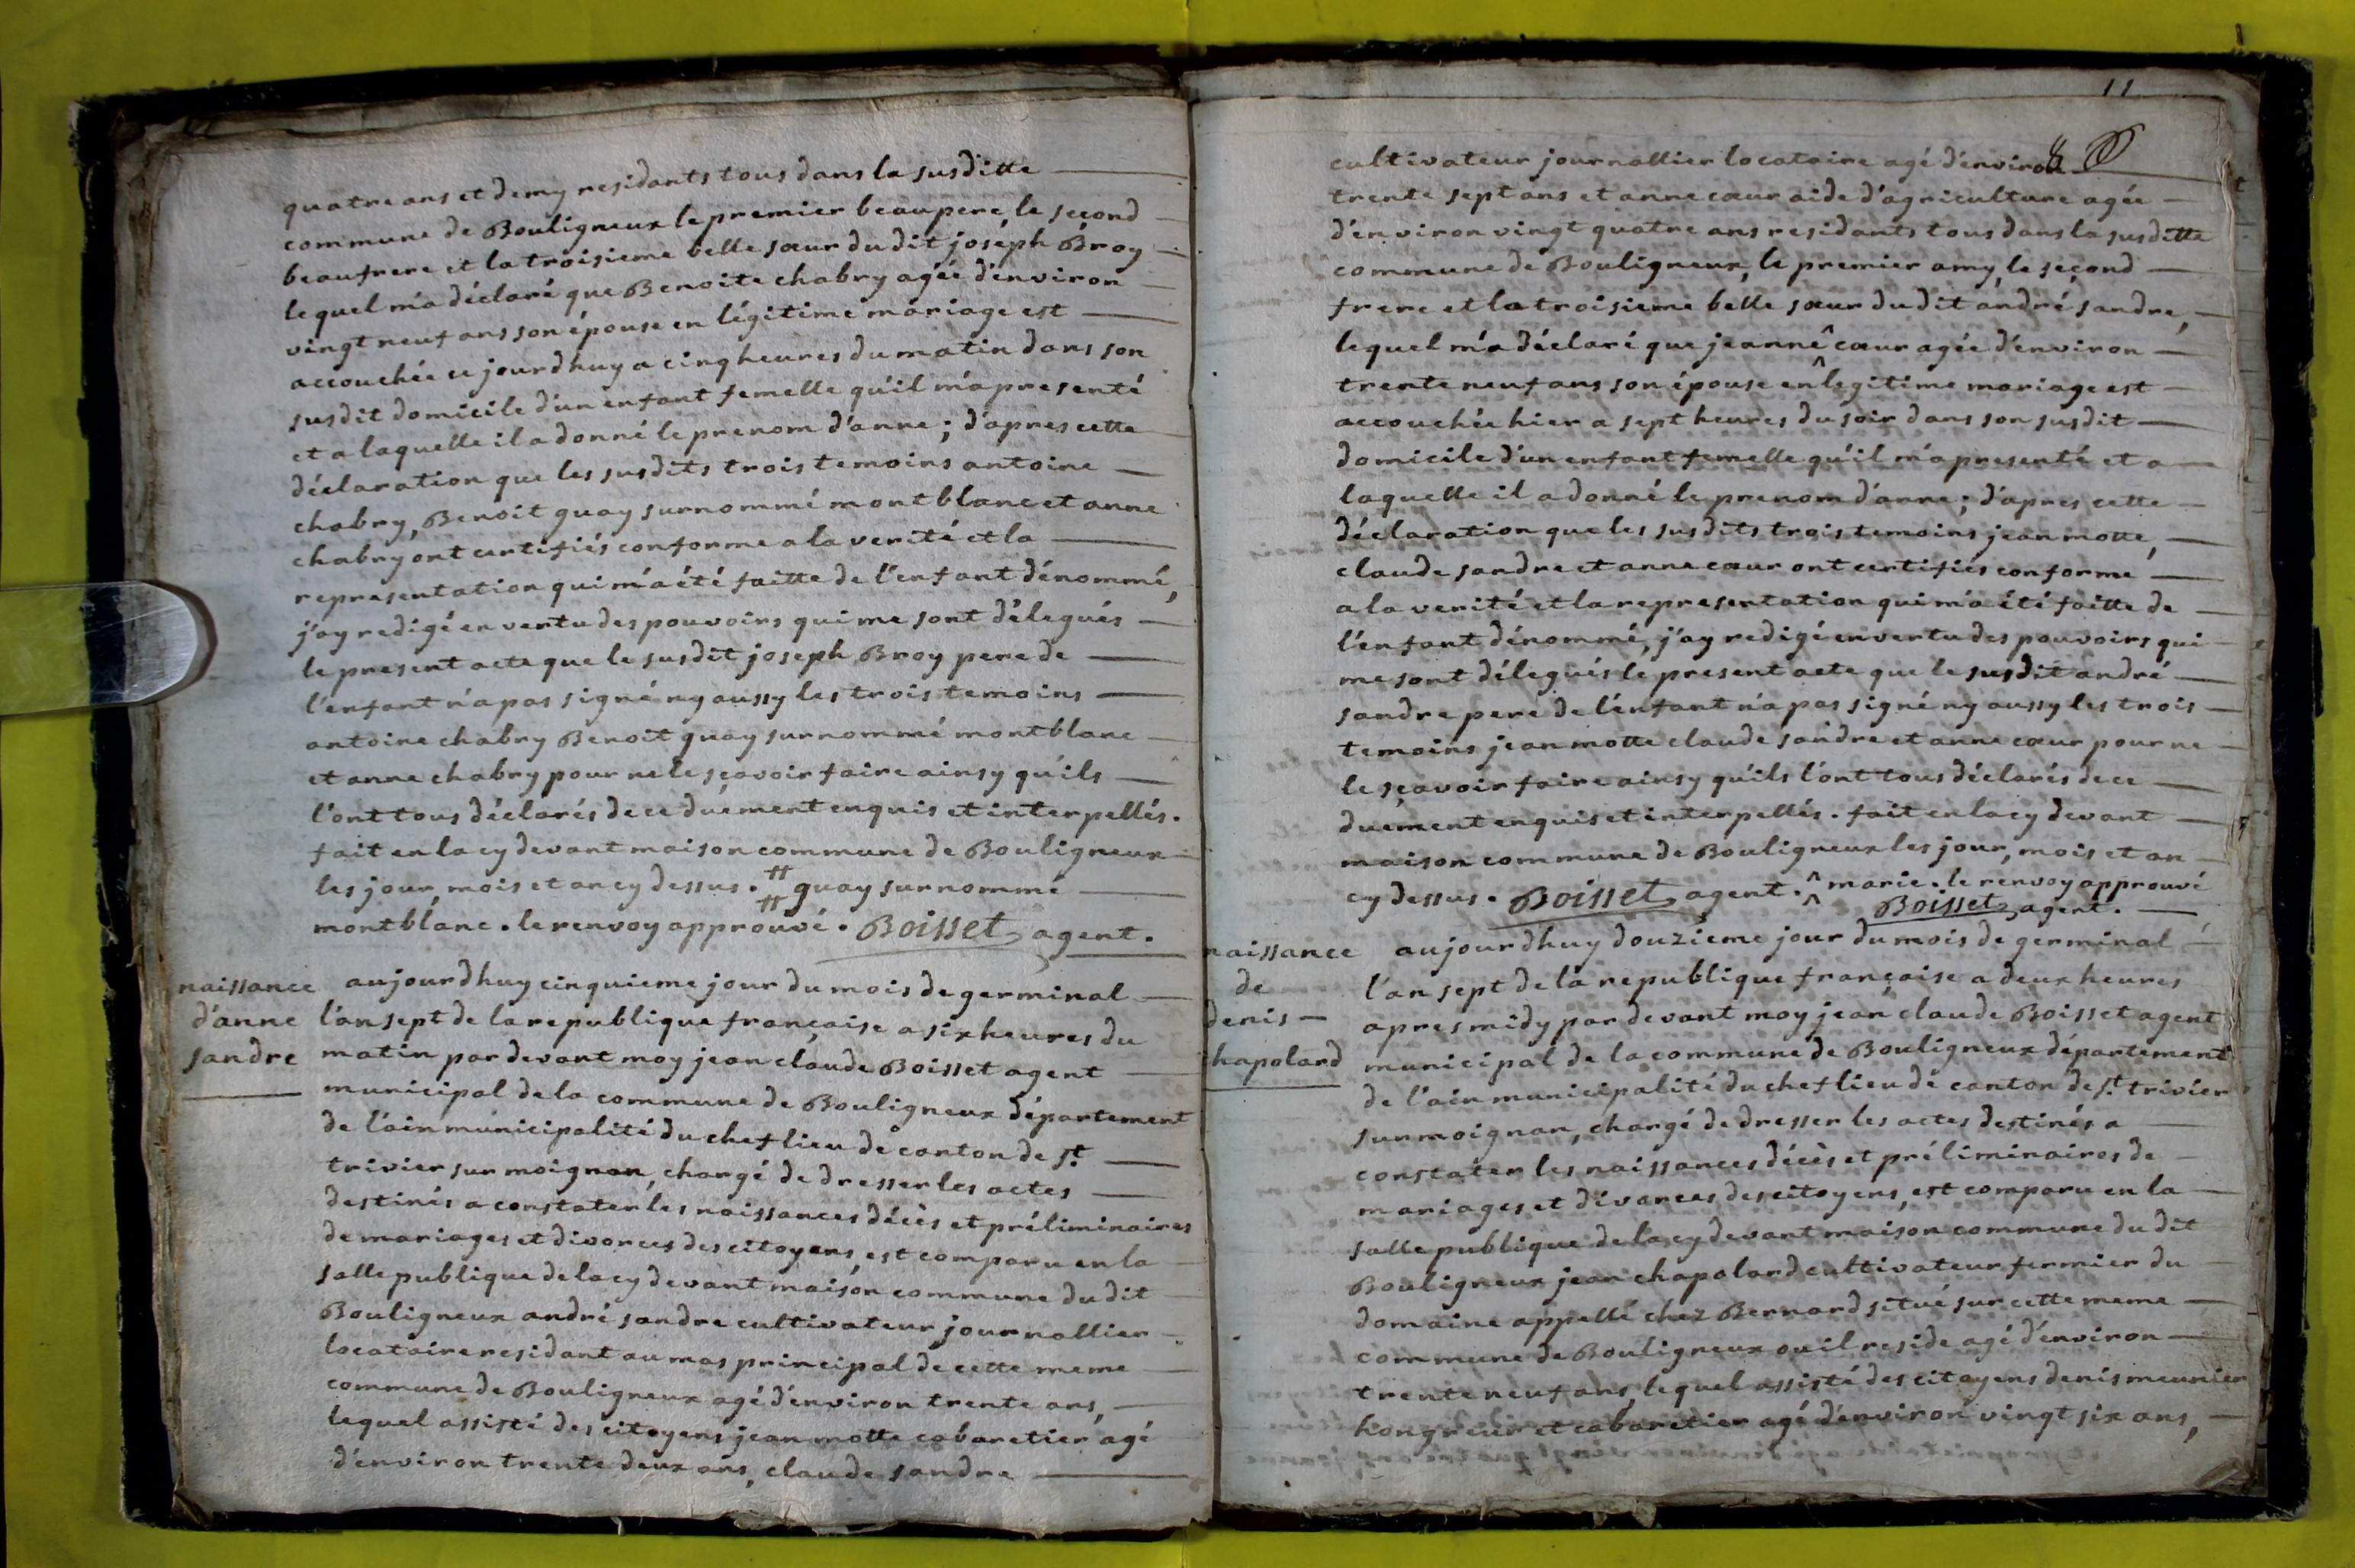 quatre ans et demy residants tous dans la susditte
commune de Bouligneux le premier beaupere, le second
beaufrere et la troisieme belle sœur du dit joseph Broy
lequel m'a déclaré que Benoite chabry agée d'environ
vingt neuf ans son épouse en légitime mariage est
accouchée ce jourdhuy a cinq heures du matin dans son
susdit domicile d'un enfant femelle qu'il m'a presenté
et a laquelle il a donné le prenom d'anne ; d'apres cette
déclaration que les susdits trois temoins antoine
chabry, Benoit guay surnommé montblanc et anne
chabry ont certifiés conforme a la verité et la
representation qui m'a été faitte de l'enfant dénommé,
j'ay redigé en vertu des pouvoirs qui me sont délegués
le present acte que le susdit joseph Broy pere de
l'enfant n'a pas signé ny aussy les trois temoins
antoine chabry Benoit guay surnommé montblanc
et anne chabry pour ne le sçavoir faire ainsy qu'ils
l'ont tous déclarés de ce duement enquis et interpellés.
fait en la cy devant maison commune de Bouligneux
les jour, mois et an cy dessus. # guay surnommé
montblanc. le renvoy approuvé. Boisset agent.
naissance
d'anne
sandre
aujourdhuy cinquieme jour du mois de germinal
l'an sept de la republique française a six heures du
matin par devant moy jean claude Boisset agent
municipal de la commune de Bouligneux département
de l'ain municipalité du chef lieu de canton de st.
trivier sur moignan, chargé de dresser les actes
destinés a constater les naissances décès et préliminaires
de mariages et divorces des citoyens, est comparu en la
salle publique de la cy devant maison commune du dit
Bouligneux andré sandre cultivateur journallier
locataire residant au mas principal de cette meme
commune de Bouligneux agé d'environ trente ans,
lequel assisté des citoyens jean motte cabaretier agé
d'environ trente deux ans, claude sandre
11
cultivateur journallier locataire agé d'environ
trente sept ans et anne cœur aide d'agriculture agée
d'environ vingt quatre ans residants tous dans la susditte
commune de Bouligneux, le premier amy, le second
frere et la troisieme belle sœur du dit andré sandre,
lequel m'a déclaré que jeanne ^ cœur agée d'environ
trente neuf ans son épouse en legitime mariage est
accouchée hier a sept heures du soir dans son susdit
domicile d'un enfant femelle qu'il m'a presenté et a
laquelle il a donné le prenom d'anne ; d'apres cette
déclaration que les susdits trois temoins jean motte,
claude sandre et anne cœur ont certifiés conforme
a la verité et la representation qui m'a été faitte de
l'enfant dénommé, j'ay redigé en vertu des pouvoirs qui
me sont délegués le present acte que le susdit andré
sandre pere de l'enfant n'a pas signé ny aussy les trois
temoins jean motte claude sandre et anne cœur pour ne
le sçavoir faire ainsy qu'ils l'ont tous déclarés de ce
duement enquis et interpellés. fait en la cy devant
maison commune de Bouligneux les jour, mois et an
cy dessus. Boisset agent. ^ marie. le renvoy approuvé
Boisset agent.
naissance
de
denis
chapolard
aujourdhuy douzieme jour du mois de germinal
l'an sept de la republique française a deux heures
apres midy par devant moy jean claude Boisset agent
municipal de la commune de Bouligneux département
de l'ain municipalité du chef lieu de canton de st. trivier
sur moignan, chargé de dresser les actes destinés a
constater les naissances décès et préliminaires de
mariages et divorces des citoyens, est comparu en la
salle publique de la cy devant maison commune du dit
Bouligneux jean chapolard cultivateur fermier du
domaine appellé chez Bernard situé sur cette meme
commune de Bouligneux ou il reside agé d'environ
trente neuf ans, lequel assisté des citoyens denis meunier
hongreur et cabaretier agé d'environ vingt six ans,